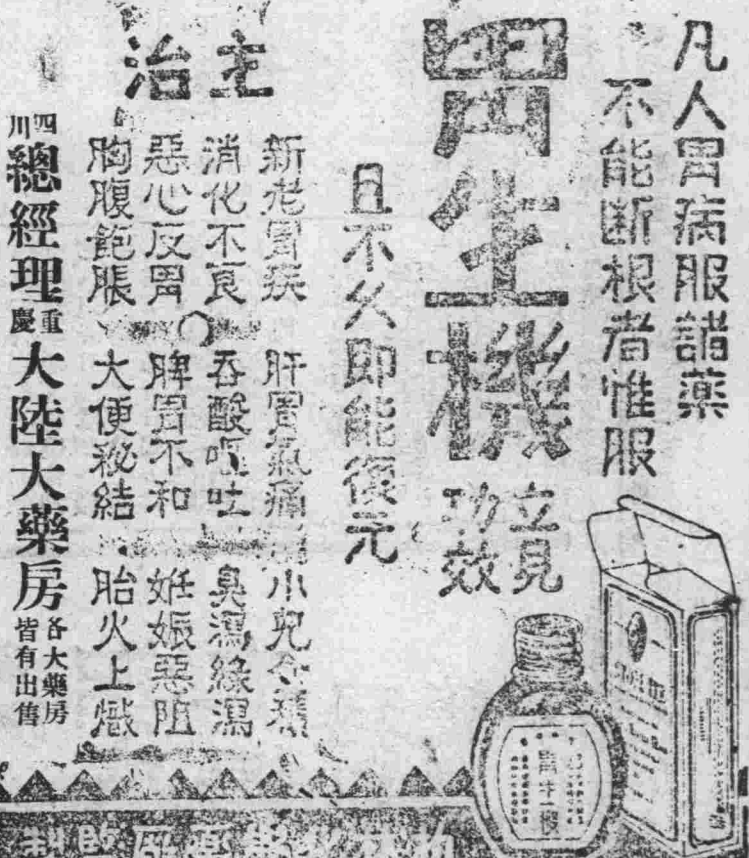 凡人胃病服諸藥
不能断根者惟服
胃生機
立見
功效
且不久即能復元
主治
新老胃疾 肝胃氣痛 小兒
消化不良 吞酸嘔吐 臭瀉綠瀉
惡心反胃 脾胃不和 妊娠惡阻
胸腹飽脹 大便秘結 胎火上熾
四川總經理 重慶大陸大藥房 各大藥房皆有出售
胃生機